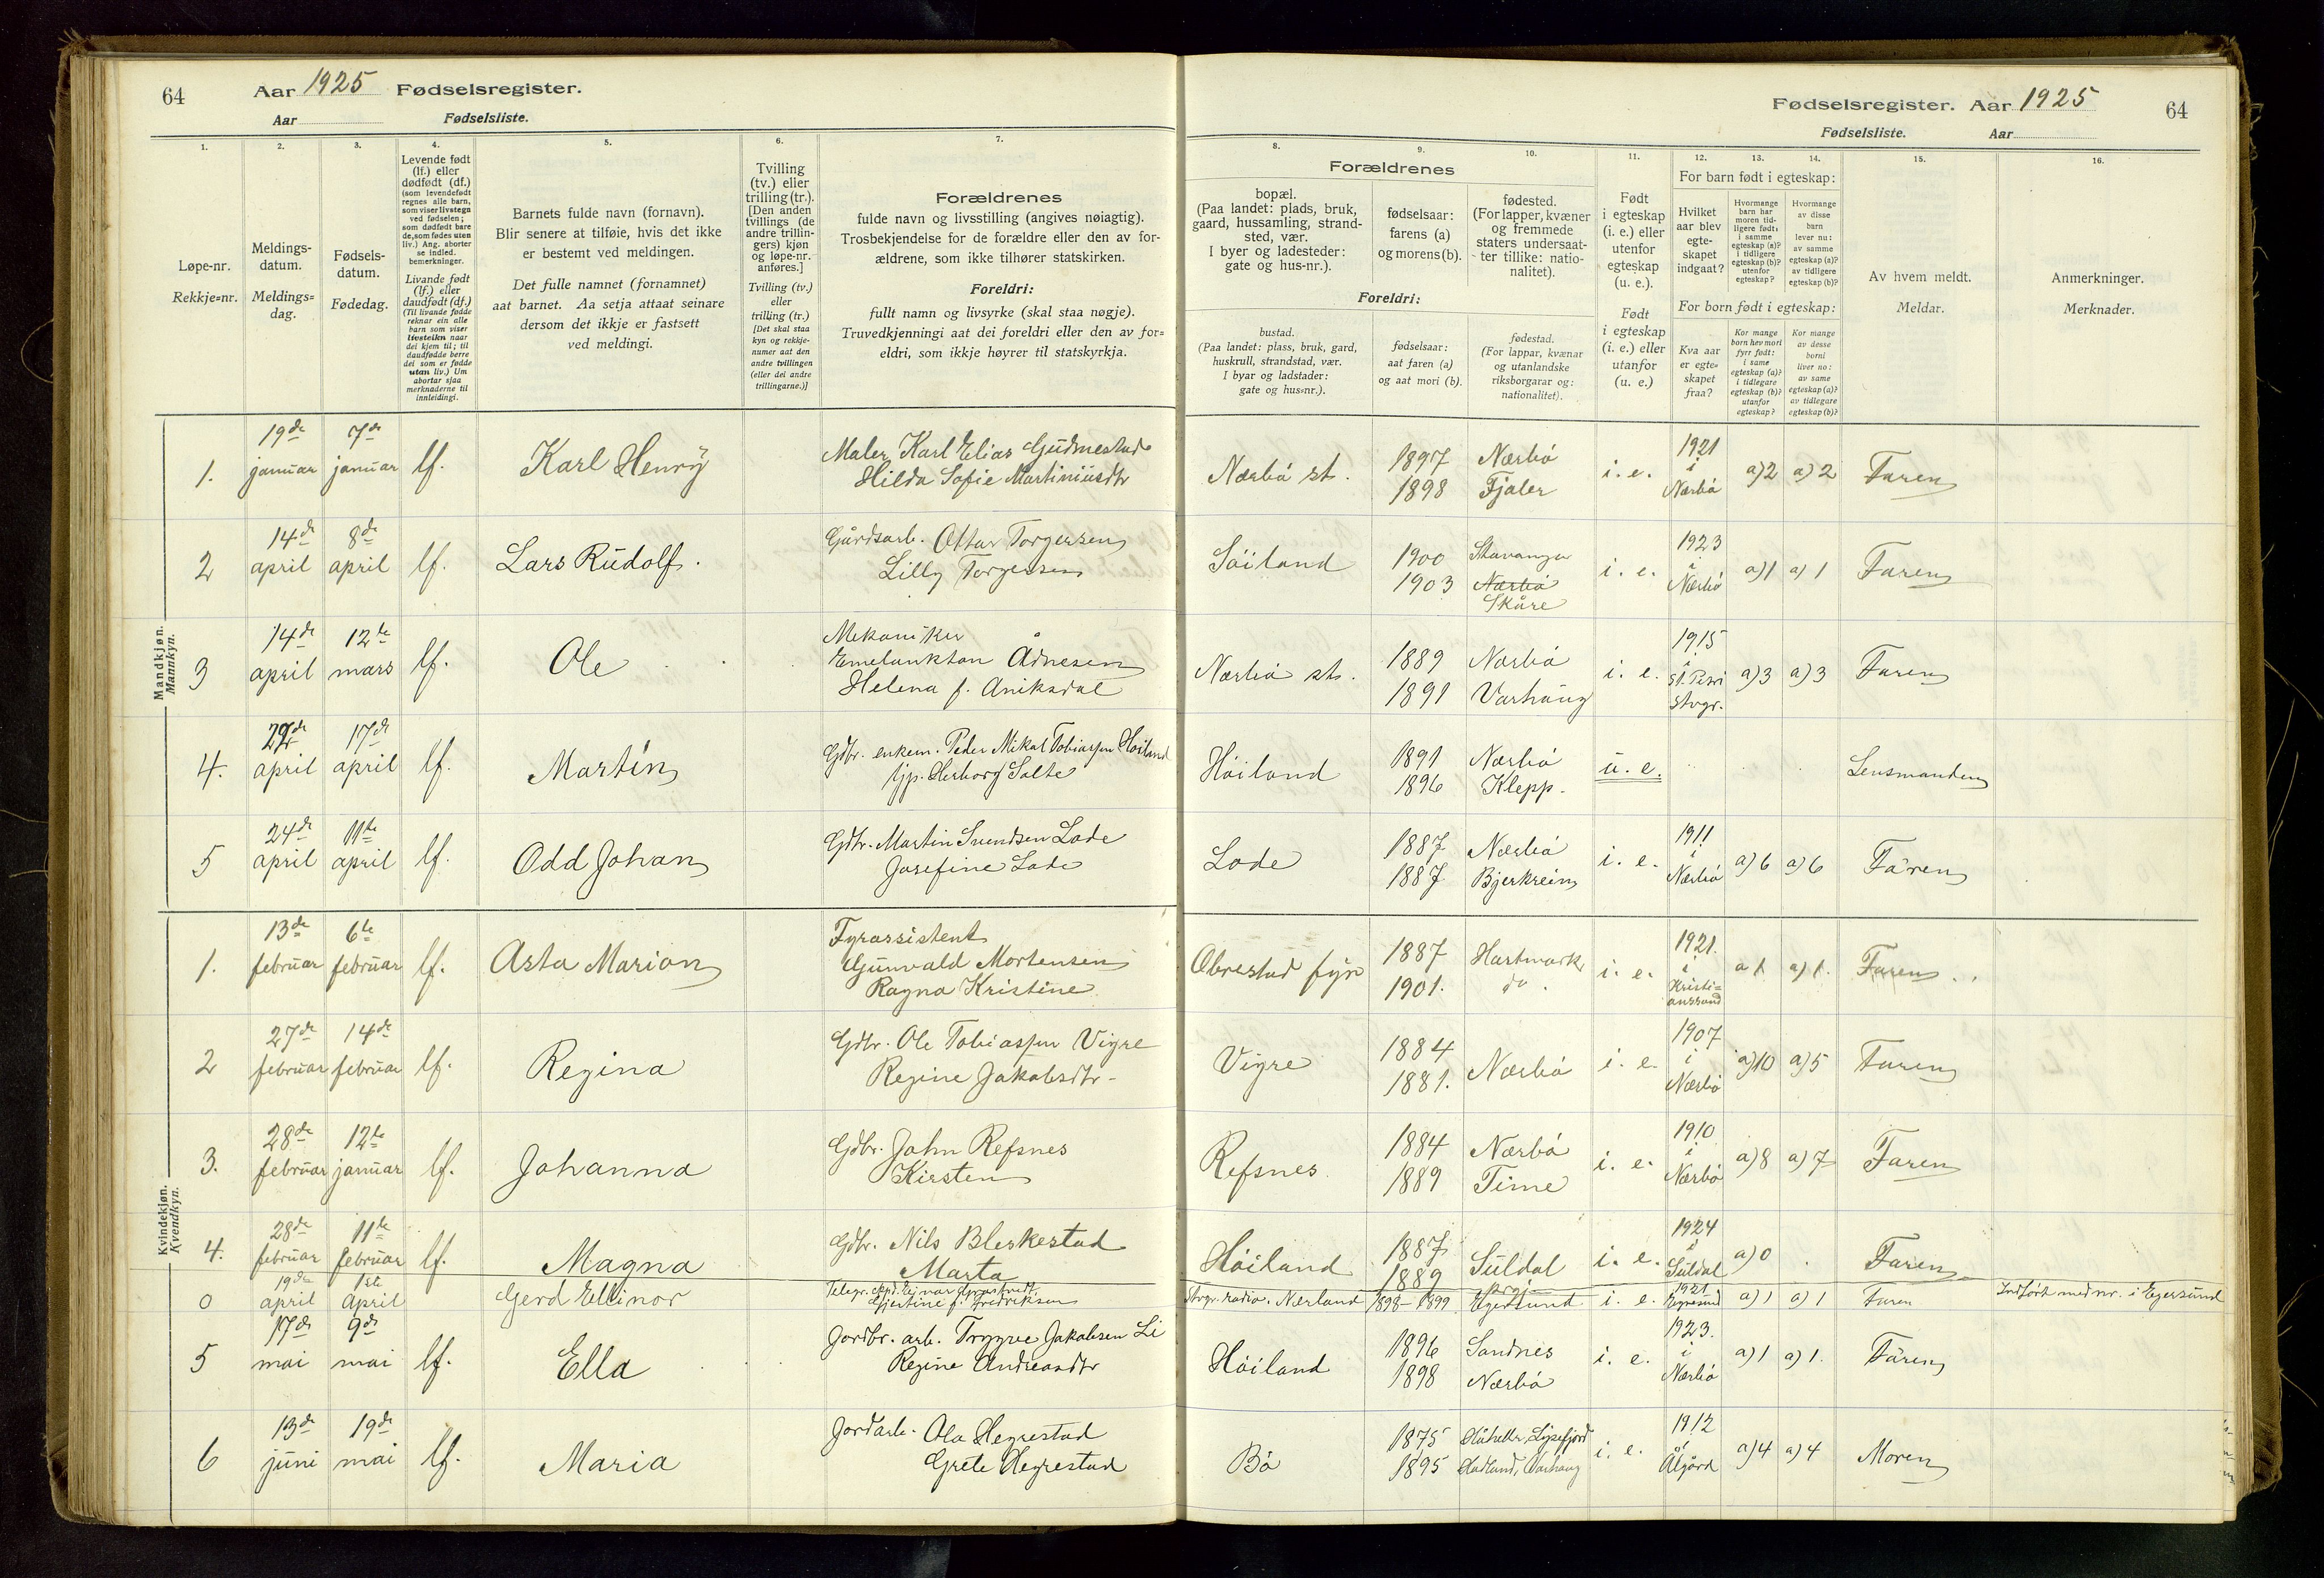 64
Aar 1925 Fødselsregister.
Aar
Fødselsliste.
1.
2.
3.
4.
5.
6.
7.
Løpe-nr.
Rekkje=nr.
Meldings-
datum.
Meldings=
dag.
Fødsels-
datum.
Fødedag.
Levende født
(lf.) eller
dødfødt (df.)
(som levendefødt
regnes alle barn,
som viser livstegn
ved fødselen;
som dødfødt bare
de, som fødes uten
liv.) Ang. aborter
se indled.
bemerkninger.
Livande født
(lf.) eller
daudfødt (df.)
(Til livande fødde
reknar ein alle
barn som viser
livsteikn naar
dei kjem til; til
daudfødde berre
dei som er fødde
utan liv.) Um
abortar sjaa
merknaderne til
innleidingi.
Barnets fulde navn (fornavn).
Blir senere at tilføie, hvis det ikke
er bestemt ved meldingen.
Det fulle namnet (fornamnet)
aat barnet. Aa setja attaat seinare
dersom det ikkje er fastsett
ved meldingi.
Tvilling
(tv.) eller
trilling (tr.).
[Den anden
tvillings (de
andre trillin-
gers) kjøn
og løpe-nr.
anføres.]
Tvilling (tv.)
eller
trilling (tr.)
[Det skal staa
kyn og rekkje-
numer aat den
andre tvillingen
(eller dei andre
trillingarne.)]
Forældrenes
fulde navn og livsstilling (angives nøiagtig).
Trosbekjendelse for de forældre eller den av for-
ældrene, som ikke tilhører statskirken.
Foreldri:
fullt namn og livsyrke (skal staa nøgje).
Truvedkjenningi aat dei foreldri eller den av for=
eldri, som ikkje høyrer til statskyrkja.
Fødselsregister. Aar 1925
64
Fødselsliste.
Aar
8.
9.
10.
11.
12.
13.
14.
15.
16.
Forældrenes
bopæl.
(Paa landet: plads, bruk,
gaard, hussamling, strand-
sted, vær.
I byer og ladesteder:
gate og hus-nr.).
fødselsaar:
farens (a)
og morens (b).
fødested.
(For lapper, kvæner
og fremmede
staters undersaat-
ter tillike: natio-
nalitet).
Foreldri:
bustad.
(Paa landet: plass, bruk, gard,
huskrull, strandstad, vær.
I byar og ladstader:
gate og hus=nr.).
fødselsaar:
aat faren (a)
og aat mori (b).
fødestad.
(For lappar, kvænar
og utanlandske
riksborgarar og:
nationalitet).
Født
i egteskap
(i. e.) eller
utenfor
egteskap
(u. e.).
Født
i egteskap
(i. e.) eller
utanfor
(u. e.)
For barn født i egteskap:
Hvilket
aar blev
egte-
skapet
indgaat?
Hvormange
barn har
moren tid-
ligere født:
i samme
egteskap (a)?
i tidligere
egteskap (b)?
utenfor
egteskap?
Hvormange
av disse
barn
lever nu:
av samme
egteskap (a)?
av tidligere
egteskap (b)?
For born født i egteskap:
Kva aar
er egte=
skapet
fraa?
Kor mange
born hev mori
fyrr født:
i same
egteskap (a)?
i tidlegare
egteskap (b)?
utanfor
egteskap?
Kor mange
av desse
borni
liver no:
av same
egteskap (a)?
av tidlegare
egteskap (b)?
Av hvem meldt.
Meldar.
Anmerkninger.
Merknader.
Mandkjøn.
Mannkyn.
1. 19de januar 7de januar lf. Karl Henry Maler Karl Elias Gudmestad Hilda Sofie Martiniusdtr Nærbø st. 1897 1898 Nærbø Fjaler i. e. 1921 i Nærbø a) 2 a) 2 Faren
2 14de april 8de april lf. Lars Rudolf. Gårdsarb. Ottar Torgersen Lilly Torgersen Söiland 1900 1903 Stavanger Nærbø Skåre i. e. 1923 i Nærbø a) 1 a) 1 Faren
3 14de april 12te mars lf. Ole Mekaniker Emelankton Ådnesen Helena f. Aniksdal Nærbø st. 1889 1891 Nærbø Varhaug i. e. 1915 i St. Petri Stvgr. a) 3 a) 3 Faren
4. april 17de april lf. Martin Gdbr. enkem. Peder Mikal Tobiassen Høiland tjp. Herborg Salte Høiland 1891 1896 Nærbø Klepp. u. e. Lensmanden
5 24de april 11te april lf. Odd Johan Gdbr. Martin Svendsen Lode Josefine Lode Lode 1887 1887 Nærbø Bjerkreim i. e. 1911 i Nærbø a) 6 a) 6 Faren
Kvindekjøn.
Kvendkyn.
1. 13de februar 6te februar lf. Asta Marion Fyrassistent Gunvald Mortensen Ragna Kristine Obrestad fyr 1887 1901. Hartmark do. i. e. 1921. i Kristi=anssand a 1 a) 1. Faren
2 27de februar 14de februar lf. Regina Gdbr. Ole Tobiassen Vigre Regine Jakobsdtr- Vigre 1884 1881. Nærbø i. e. 1907 i Nærbø a) 10 a) 5 Faren
3. 28de februar 12te januar lf. Johanna Gdbr. John Refsnes Kirsten Refsnes 1884 1889 Nærbø Time i. e. 1910 i Nærbø a) 8 a) 7 Faren
4. 28de februar 11te februar lf. Magna Gdbr. Nils Bleskestad Marta Høiland 1887 1889 Suldal i. e. 1924 i Suldal a) 0 Faren
0 19de april 1ste April Gerd Ellinor Telegr. Gjertine f. Fredriksen Stvgr. radio. Nærland 1898- 1899 Egersund i. e. 1921 Egersund a) 1 a) 1 Faren Indført med nr. i Egersund
5 17de mai 9de mai lf. Ella Jordbr. arb. Trygve Jakobsen Li Regine Andreasdtr Høiland 1896 1898 Sandnes Nærbø i. e. 1923. i Nærbø a) 1 a) 1. Faren
6 13de juni 19de mai lf. Maria Jordarb. Ola Hegrestad Grete Hegrestad Bø 1875 1895 Lysefjord Varhaug i. e. 1912 i Ålgård a) 4 a) 4 Moren